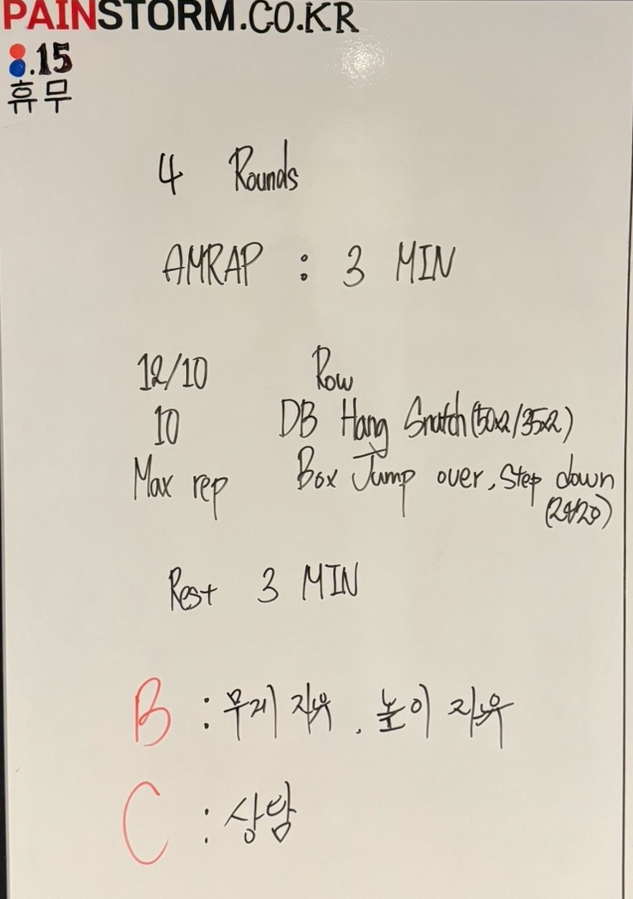 PAINSTORM.CO.KR
8.15
휴무
4 Rounds
AMRAP : 3 MIN
12/10 Row
10 DB Hang Snatch (50x2/35x2)
Max rep Box Jump over, Step down
(24/20)
Rest 3 MIN
B : 무게 자유, 높이 자유
C : 상암